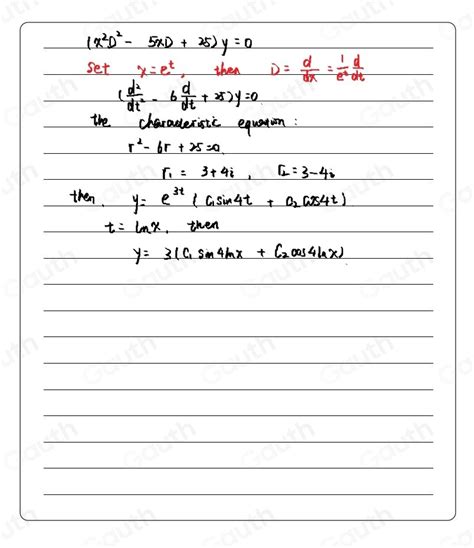 (x²D² - 5xD + 25)y = 0
Set x = e^t, then D = d/dx = 1/e^t d/dt
(d²/dt² - 6 d/dt + 25)y = 0
the characteristic equation:
r² - 6r + 25 = 0
r₁ = 3+4i, r₂ = 3-4i
then, y = e^3t (C₁sin4t + C₂cos4t)
t = lnx, then
y = 3(C₁ sin4lnx + C₂cos4lnx)
Gauth